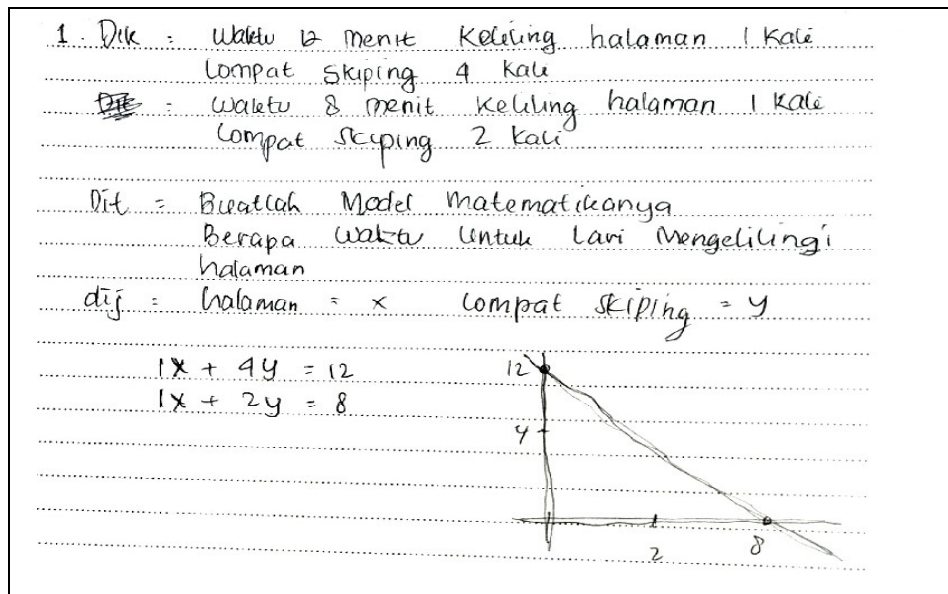 1. Dik : Waktu 12 menit Keliling halaman 1 Kali
Lompat Skiping 4 Kali
: Waktu 8 menit Keliling halaman 1 Kali
Lompat Skiping 2 Kali
Dit = Buatlah Model matematikanya
Berapa Waktu Untuk Lari Mengelilingi
halaman
dij : halaman = x Lompat Skiping = y
1x + 4y = 12
1x + 2y = 8
12
4
2
8